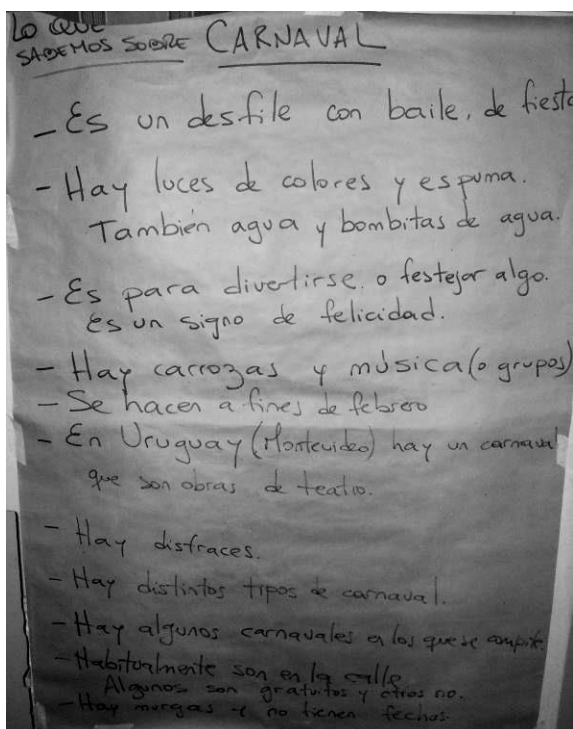 Lo QUE
SABEMOS SOBRE CARNAVAL
- Es un desfile con baile, de fiesta
- Hay luces de colores y espuma.
También agua y bombitas de agua.
- Es para divertirse o festejar algo.
Es un signo de felicidad.
- Hay carrozas y música (o grupos)
- Se hacen a fines de febrero
- En Uruguay (Montevideo) hay un carnaval
que son obras de teatro.
- Hay disfraces.
- Hay distintos tipos de carnaval.
- Hay algunos carnavales en los que se compite.
- Habitualmente son en la calle
Algunos son gratuitos y otros no.
- Hay murgas y no tienen fechas.